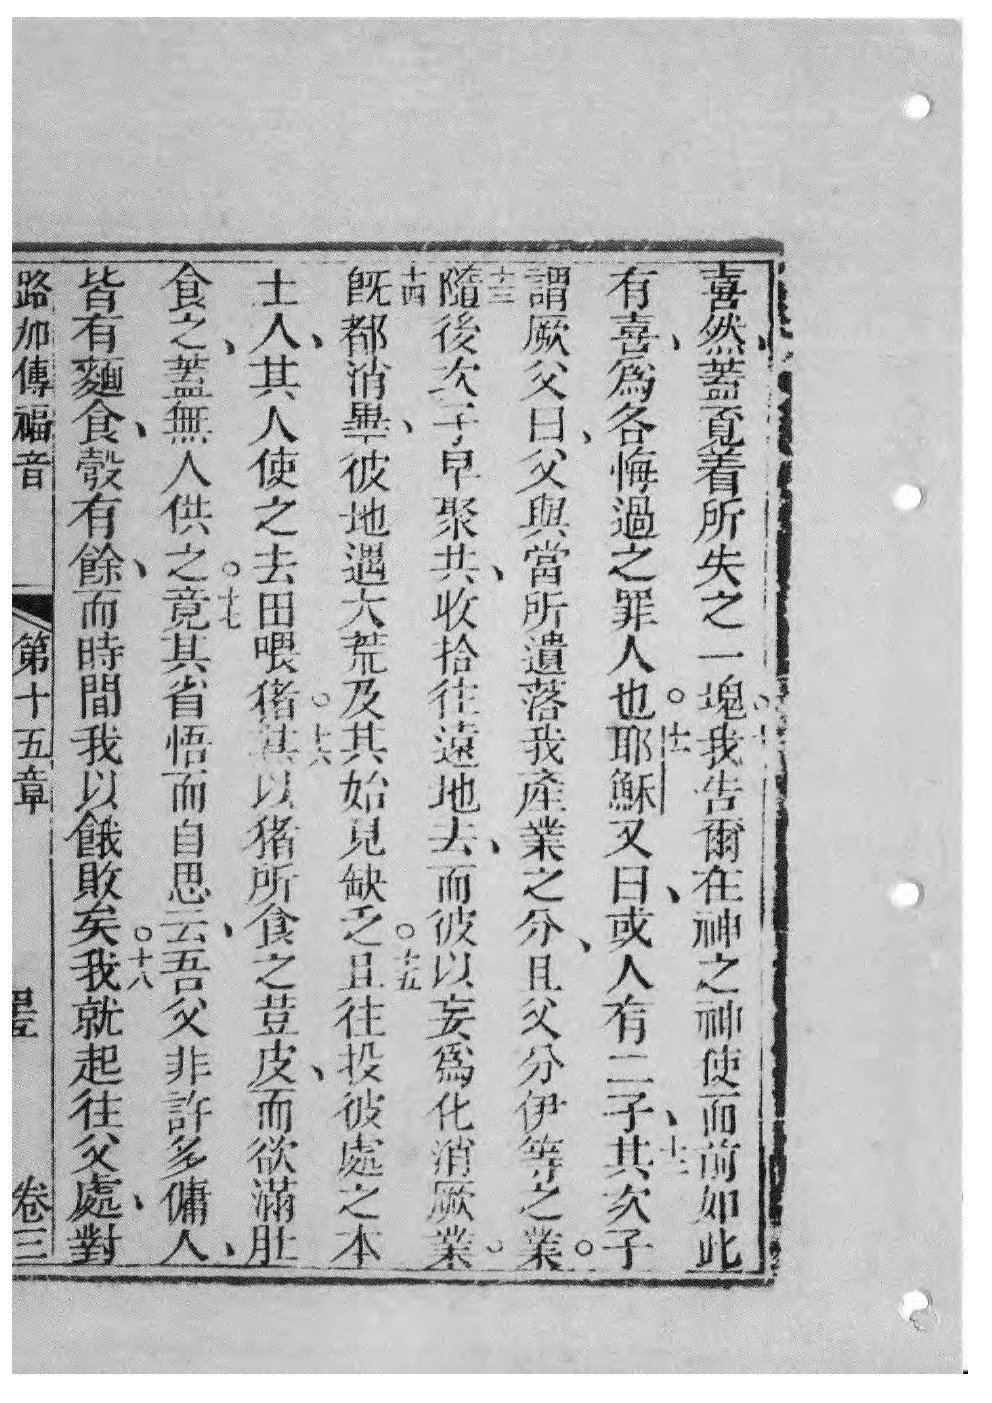 喜然、蓋覓着所失之一塊。十我告爾在神之神使而前如此
有喜、爲各悔過之罪人也。十一耶穌又曰、或人有二子、十二其次子
謂厥父曰、父與當所遺落我產業之分、且父分伊等之業。
十三隨後次子早聚共、收拾往遠地去、而彼以妄爲化消厥業。
十四既都消畢、彼地遇大荒及其始見缺乏。十五且往投彼處之本
土人、其人使之去田喂猪。十六其以猪所食之荳皮、而欲滿肚
食之、蓋無人供之。十七竟其省悟而自思云、吾父非許多傭人、
皆有麵食、彀有餘、而時間我以餓敗矣。十八我就起往父處、對
路加傳福音 第十五章 卷三